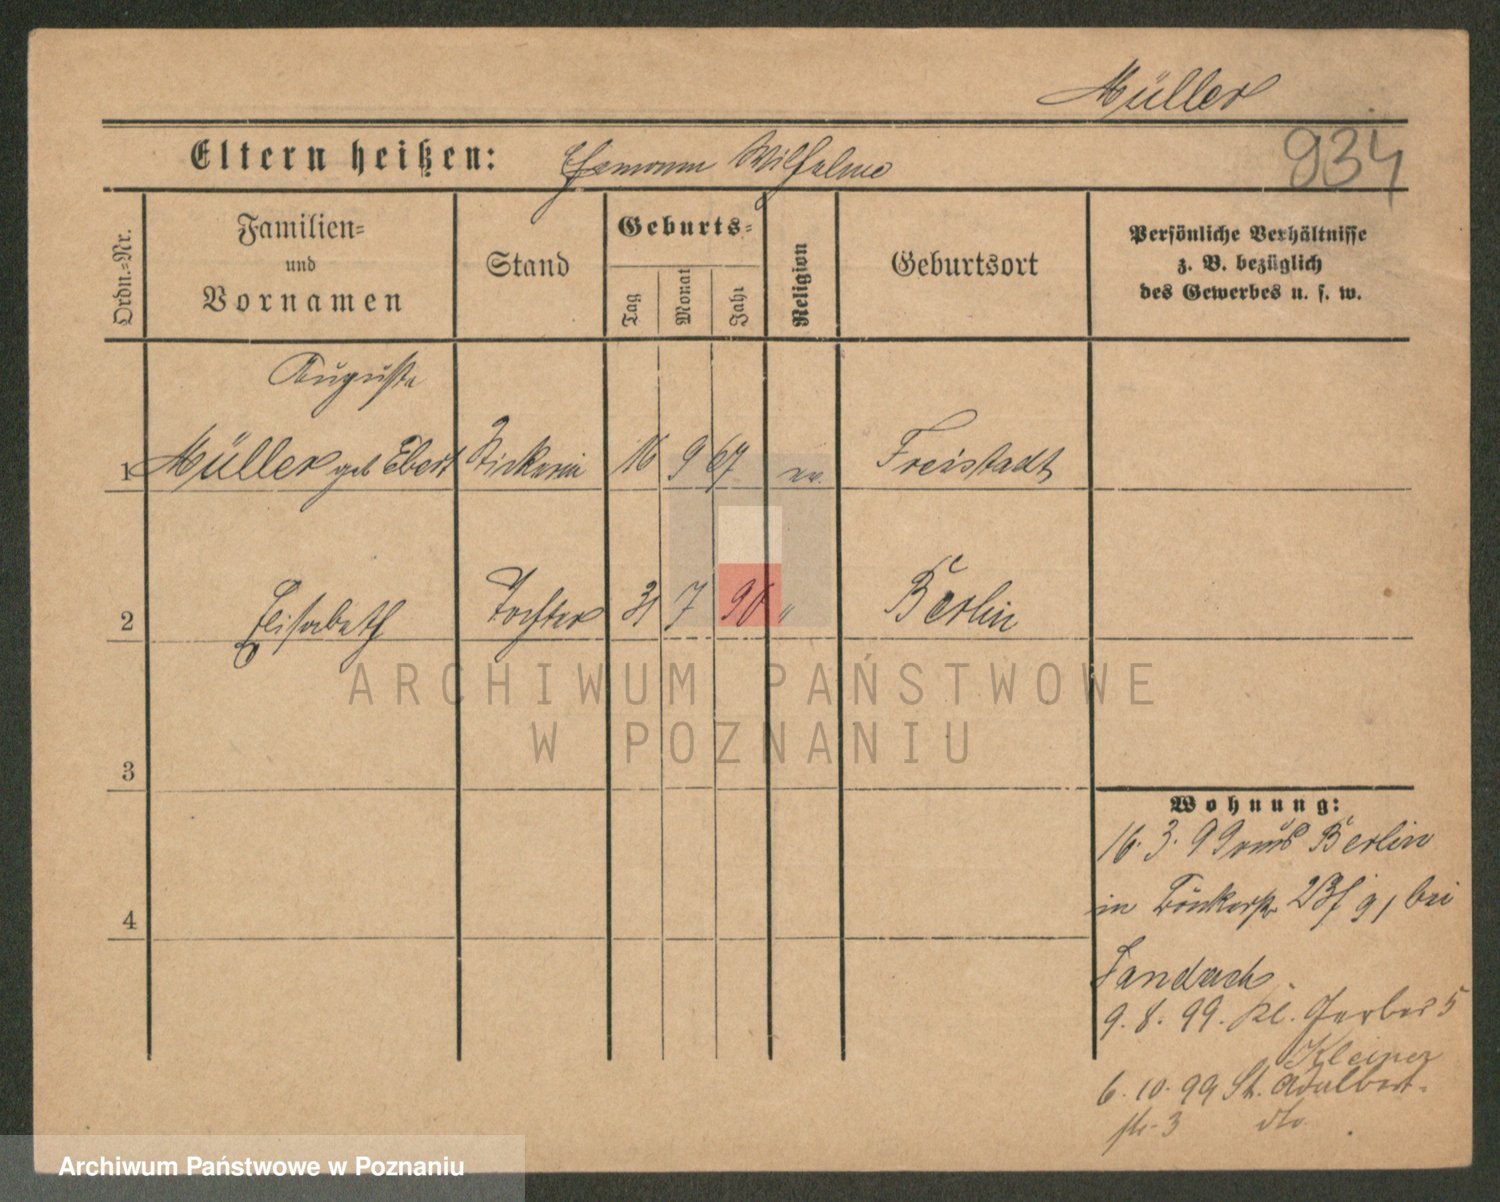 Müller
Eltern heißen: Ehemann Wilhelm
934
Ordn.-Nr.
Familien-
und
Vornamen
Stand
Geburts-
Tag
Monat
Jahr
Religion
Geburtsort
Persönliche Verhältnisse
z. B. bezüglich
des Gewerbes u. s. w.
Auguste
1 Müller geb Ebert 16 9 67 ev. Freistadt
2 Elisabeth Tochter 31 7 90 " Berlin
ARCHIWUM PAŃSTWOWE
W POZNANIU
3
Wohnung:
16. 3. 99 aus Berlin
in 23 bei
4
9. 8. 99. Kl. Gerber 5
Kleiner
6. 10. 99 St. Adalbert-
str. 3 dto
Archiwum Państwowe w Poznaniu